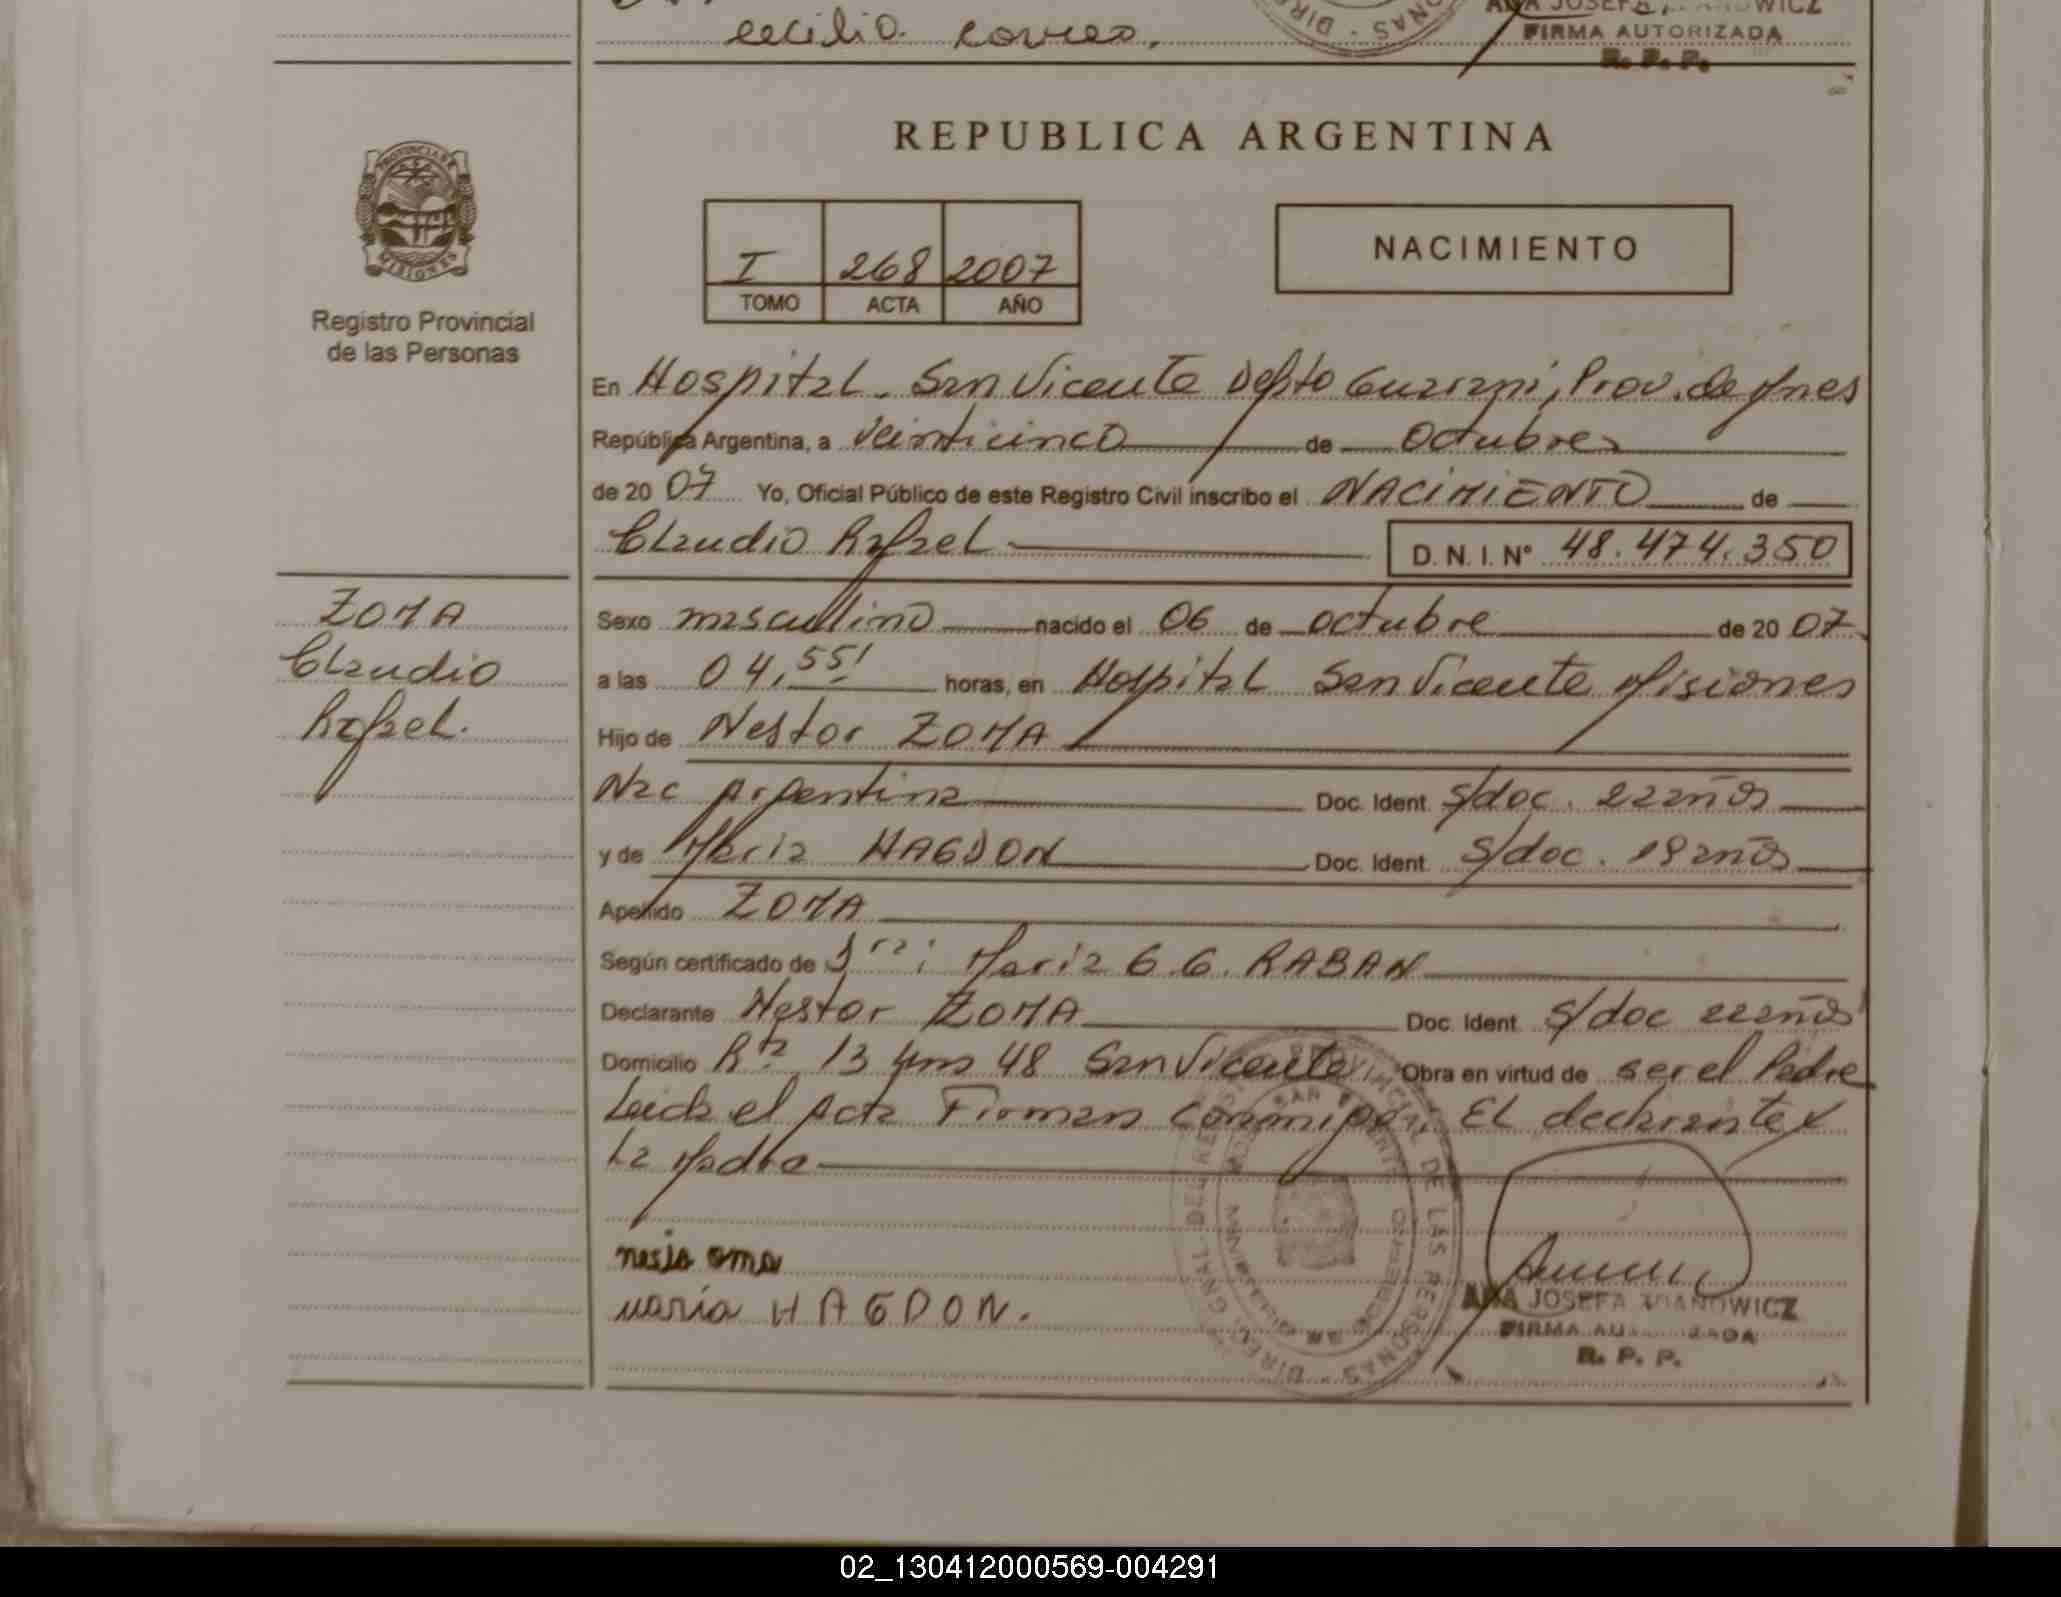 cecilio correa.
FIRMA AUTORIZADA
R. P. P.
PROVINCIA DE
MISIONES
Registro Provincial
de las Personas
REPUBLICA ARGENTINA
I 268 2007
TOMO ACTA AÑO
NACIMIENTO
En Hospital San Vicente Depto Guarani, Prov. de Mnes
República Argentina, a veinticinco de octubre
de 2007 Yo, Oficial Público de este Registro Civil inscribo el NACIMIENTO de
Claudio Rafael D. N. I. Nº 48.474.350
ZOMA
Claudio
Rafael.
Sexo masculino nacido el 06 de octubre de 2007
a las 04,55' horas, en Hospital San Vicente Misiones
Hijo de Nestor ZOMA
Nac Argentina Doc. Ident. s/doc. 22 años
y de Maria HAGDON Doc. Ident. s/doc. 19 años
Apellido ZOMA
Según certificado de Maria G.G. RABAN
Declarante Nestor ZOMA Doc. Ident. s/doc 22 años
Domicilio Rta 13 km 48 San Vicente, Obra en virtud de ser el Padre
Leida el Acta Firman conmigo, El declarante y
La Madre
maria HAGDON.
ANA JOSEFA
R. P. P.
02_130412000569-004291